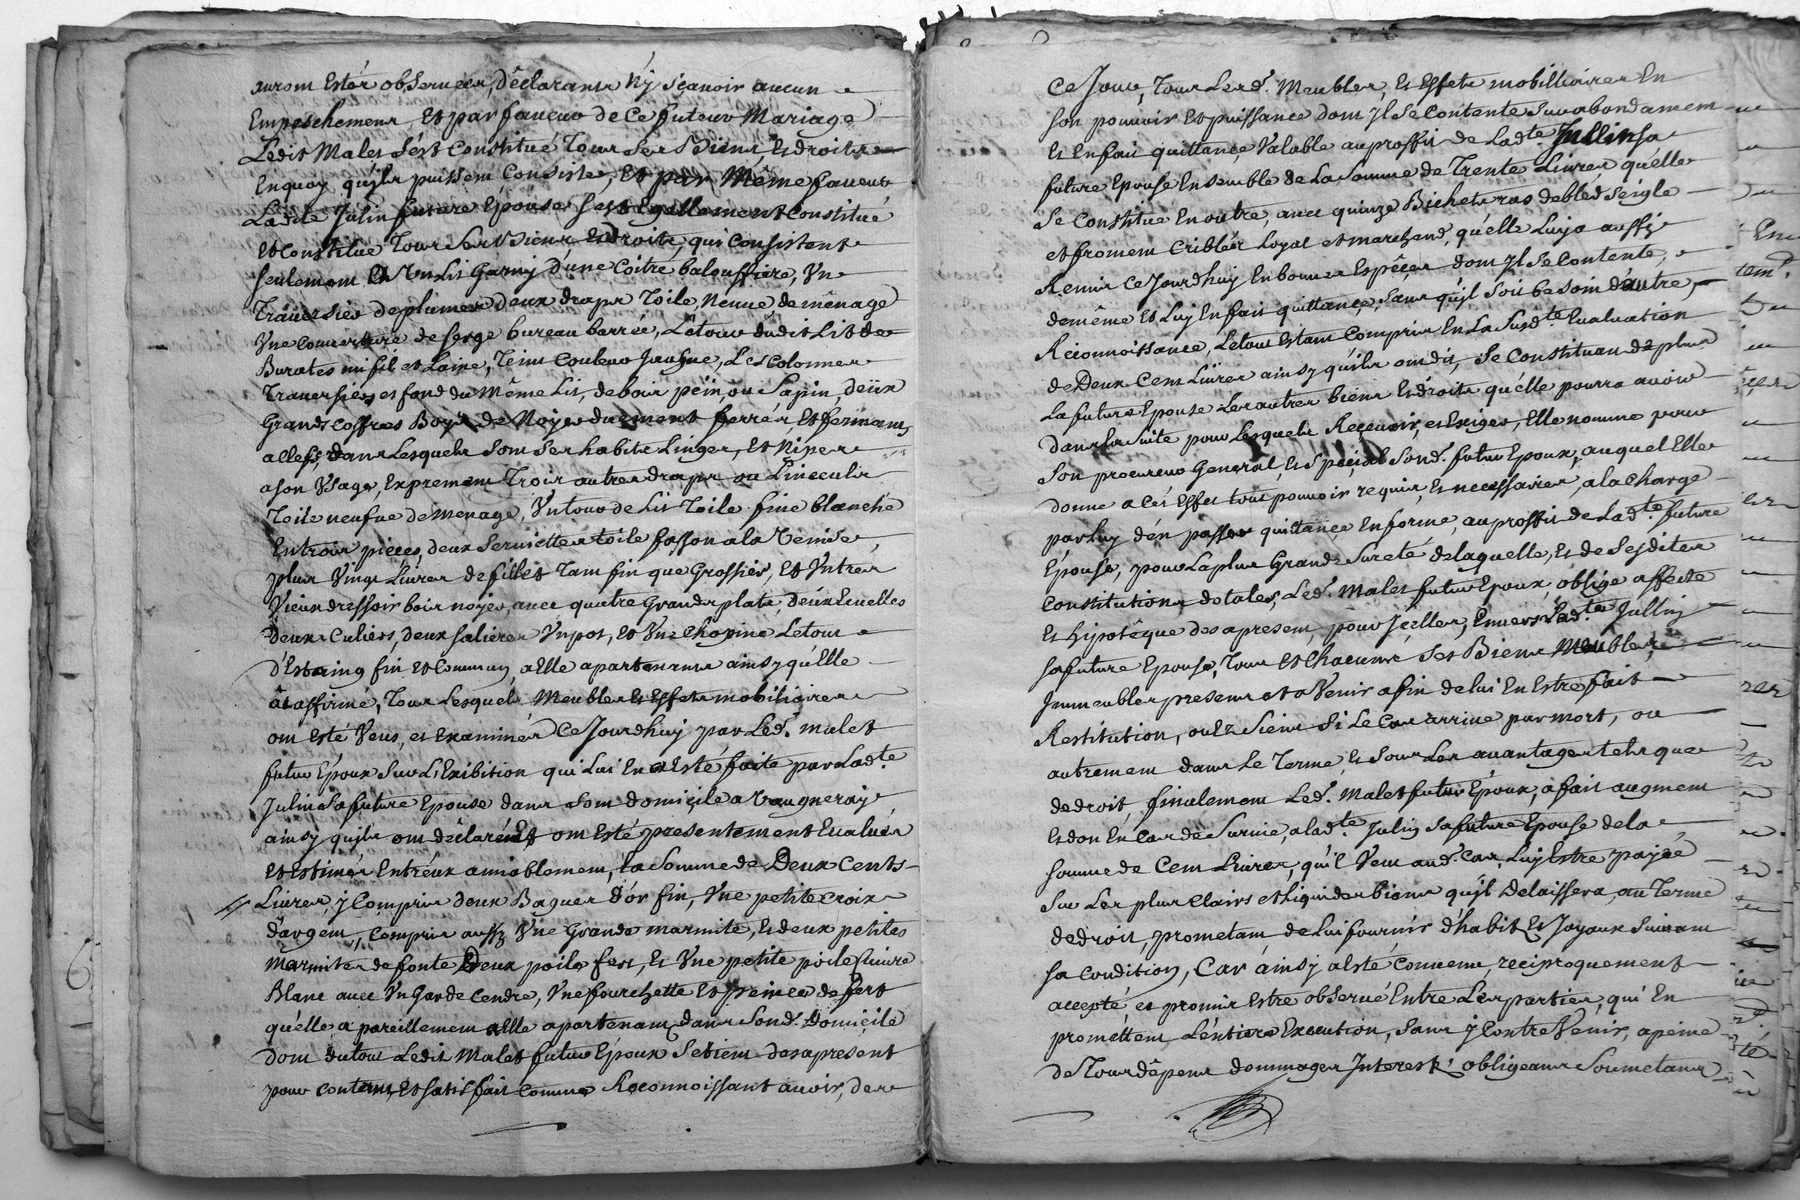 auront Estés observées, déclarants N'y sçavoir aucun
Empeschement, Et par faveur de Ce futeur Mariage
Ledit Malet s'est Constitué Tous Ses Biens, Es droits
Enquoy quils puissent Consister, Et par Même faveur
Ladite Julin future Epouse s'est Egallement Constitué
et constitue Tous Ses Biens Es droits, qui Consistent
seulement En Un Lit Garny d'une Coitre balouffiere, Un
Traversier de plumes deux draps Toile Neuve de ménage
Une couverture de serge bureau barrée, Letour dudit Lit de
Burates mi fil et Laine, Teint Couleur Jausne, Les Colonnes
Traversiers et fond du Même Lit, debois pein, ou Sapin, deüx
Grands coffres Boys de Noyer duement ferrés, Et fermants
a clefs, dans Lesquels sont ses habits Linges, Et Nipes
a son Usage, Expremens Trois autres draps ou Linceuls
Toile neufve de menage, Un tour de Lit Toile fine blanche
En trois pièces, deux Serviettes toile fasson a la Venise
plus Vingt Livres de fillet Tant fin que Grossier, Et Un tres
Vieux dressoir bois noyer, avec quatre Grands plats, deux Ecuelles
Deux Culiers, deux salieres Un pot, Et Une Chopine Letout
d'Estaing fin et Commun, a Elle apartenants ainsy qu'Elle
a affirmé, Tous Lesquels Meubles Es Effets mobiliaires
ont Esté Veus, et Examinés Ce Jourdhuy par Led. malet
futur Epoux sur L'Exibition qui Lui En a Esté faite par Ladte
Julin sa future Epouse dans som domicile a Vaugneray
ainsy quils ont déclarés Et ont Esté presentement Evalués
et Estimés Entréux amiablement, la Somme de Deux Cents
Livres, y Compris deux Bagues D'or fin, Une petite Croix
d'argent, Compris aussy Une Grande marmite, Es deux petites
Marmites de fonte Deux poils fert, Es Une petite poile Cuivre
Blanc avec Un Garde Cendre, Une fourchette Et peinces de fert
qu'elle a pareillement a Elle apartenant dans Sond. Domicile
Dont dutout Ledit Malet futur Epoux Se tient des apresent
pour Content, Et satisfait Comme Reconnoissant avoir, des
Ce Jour, Tous Lesd. Meubles, Es Effets mobilliaires En
son pouvoir et puissance dont Il Se Contente Surabondament
Es En fait quittance Valable au proffit de Ladte Jullin sa
future Epouse Ensemble de La Somme de Trente Livres quelle
Se Constitue En outre avec quinze Bichets ras de bled seigle
et froment Criblés Loyal et marchand, qu'elle Luy a aussy
Remis Ce Jourdhuy En bonnes Espèces dont Il Se Contente,
demême Et Luy En fait quittance, sans qu'il soit besoin d'autre
Reconnoissance, Letout Estant Compris En La Susdte Evaluation
de Deux Cent Livres ainsy qu'ils ont dit, Se Constituant de plus
La future Epouse Les autres biens Es droits qu'elle pourra avoir
dans la Suite pour Lesquels Recevoir, et Exiger, Elle nomme pour
Son procureur General, Es Spécial Sond. futur Epoux, auquel Elle
donne a Cés Effet tout pouvoir requis, Es necessaires, a la Charge
par luy d'en passer quittance En forme, au proffit de Ladte future
Epouse, pour La plus Grande Sureté delaquelle, Es de Sesdites
Constitutions dotales, Led. Malet futur Epoux, oblige affecte
Es hipotéque des apresent, pour Icelles, Envers Ladte Jullin
sa future Epouse, Tous Et Chacuns Ses Biens Meubles,
Immeubles presens et a Venir afin de lui En Estre fait
Restitution, ou Es Siens Si Le Cas arrive par mort, ou
autrement dans Le Terme, Es Sous Les avantages tels que
de droit finalement Led. Malet futur Epoux, a fait augment
Es don En Cas de Survie, a ladte Julin sa future Epouse de la
somme de Cent Livres, qu'il Veut aud. Cas Luy Estre payée
Sur Les plus Clairs et Liquides biens qu'il Delaissera, au Terme
de droit, prometant de Lui fournir d'habits Es Joyaux Suivant
sa Condition, Car ainsy a Esté Convenu, reciproquement
accepté, et promis Estre observé Entre Les parties, qui En
promettent L'entiere Execution, Sans y Contre Venir, apeine
de Tous dêpens dommages Interest, obligeants Soumetants